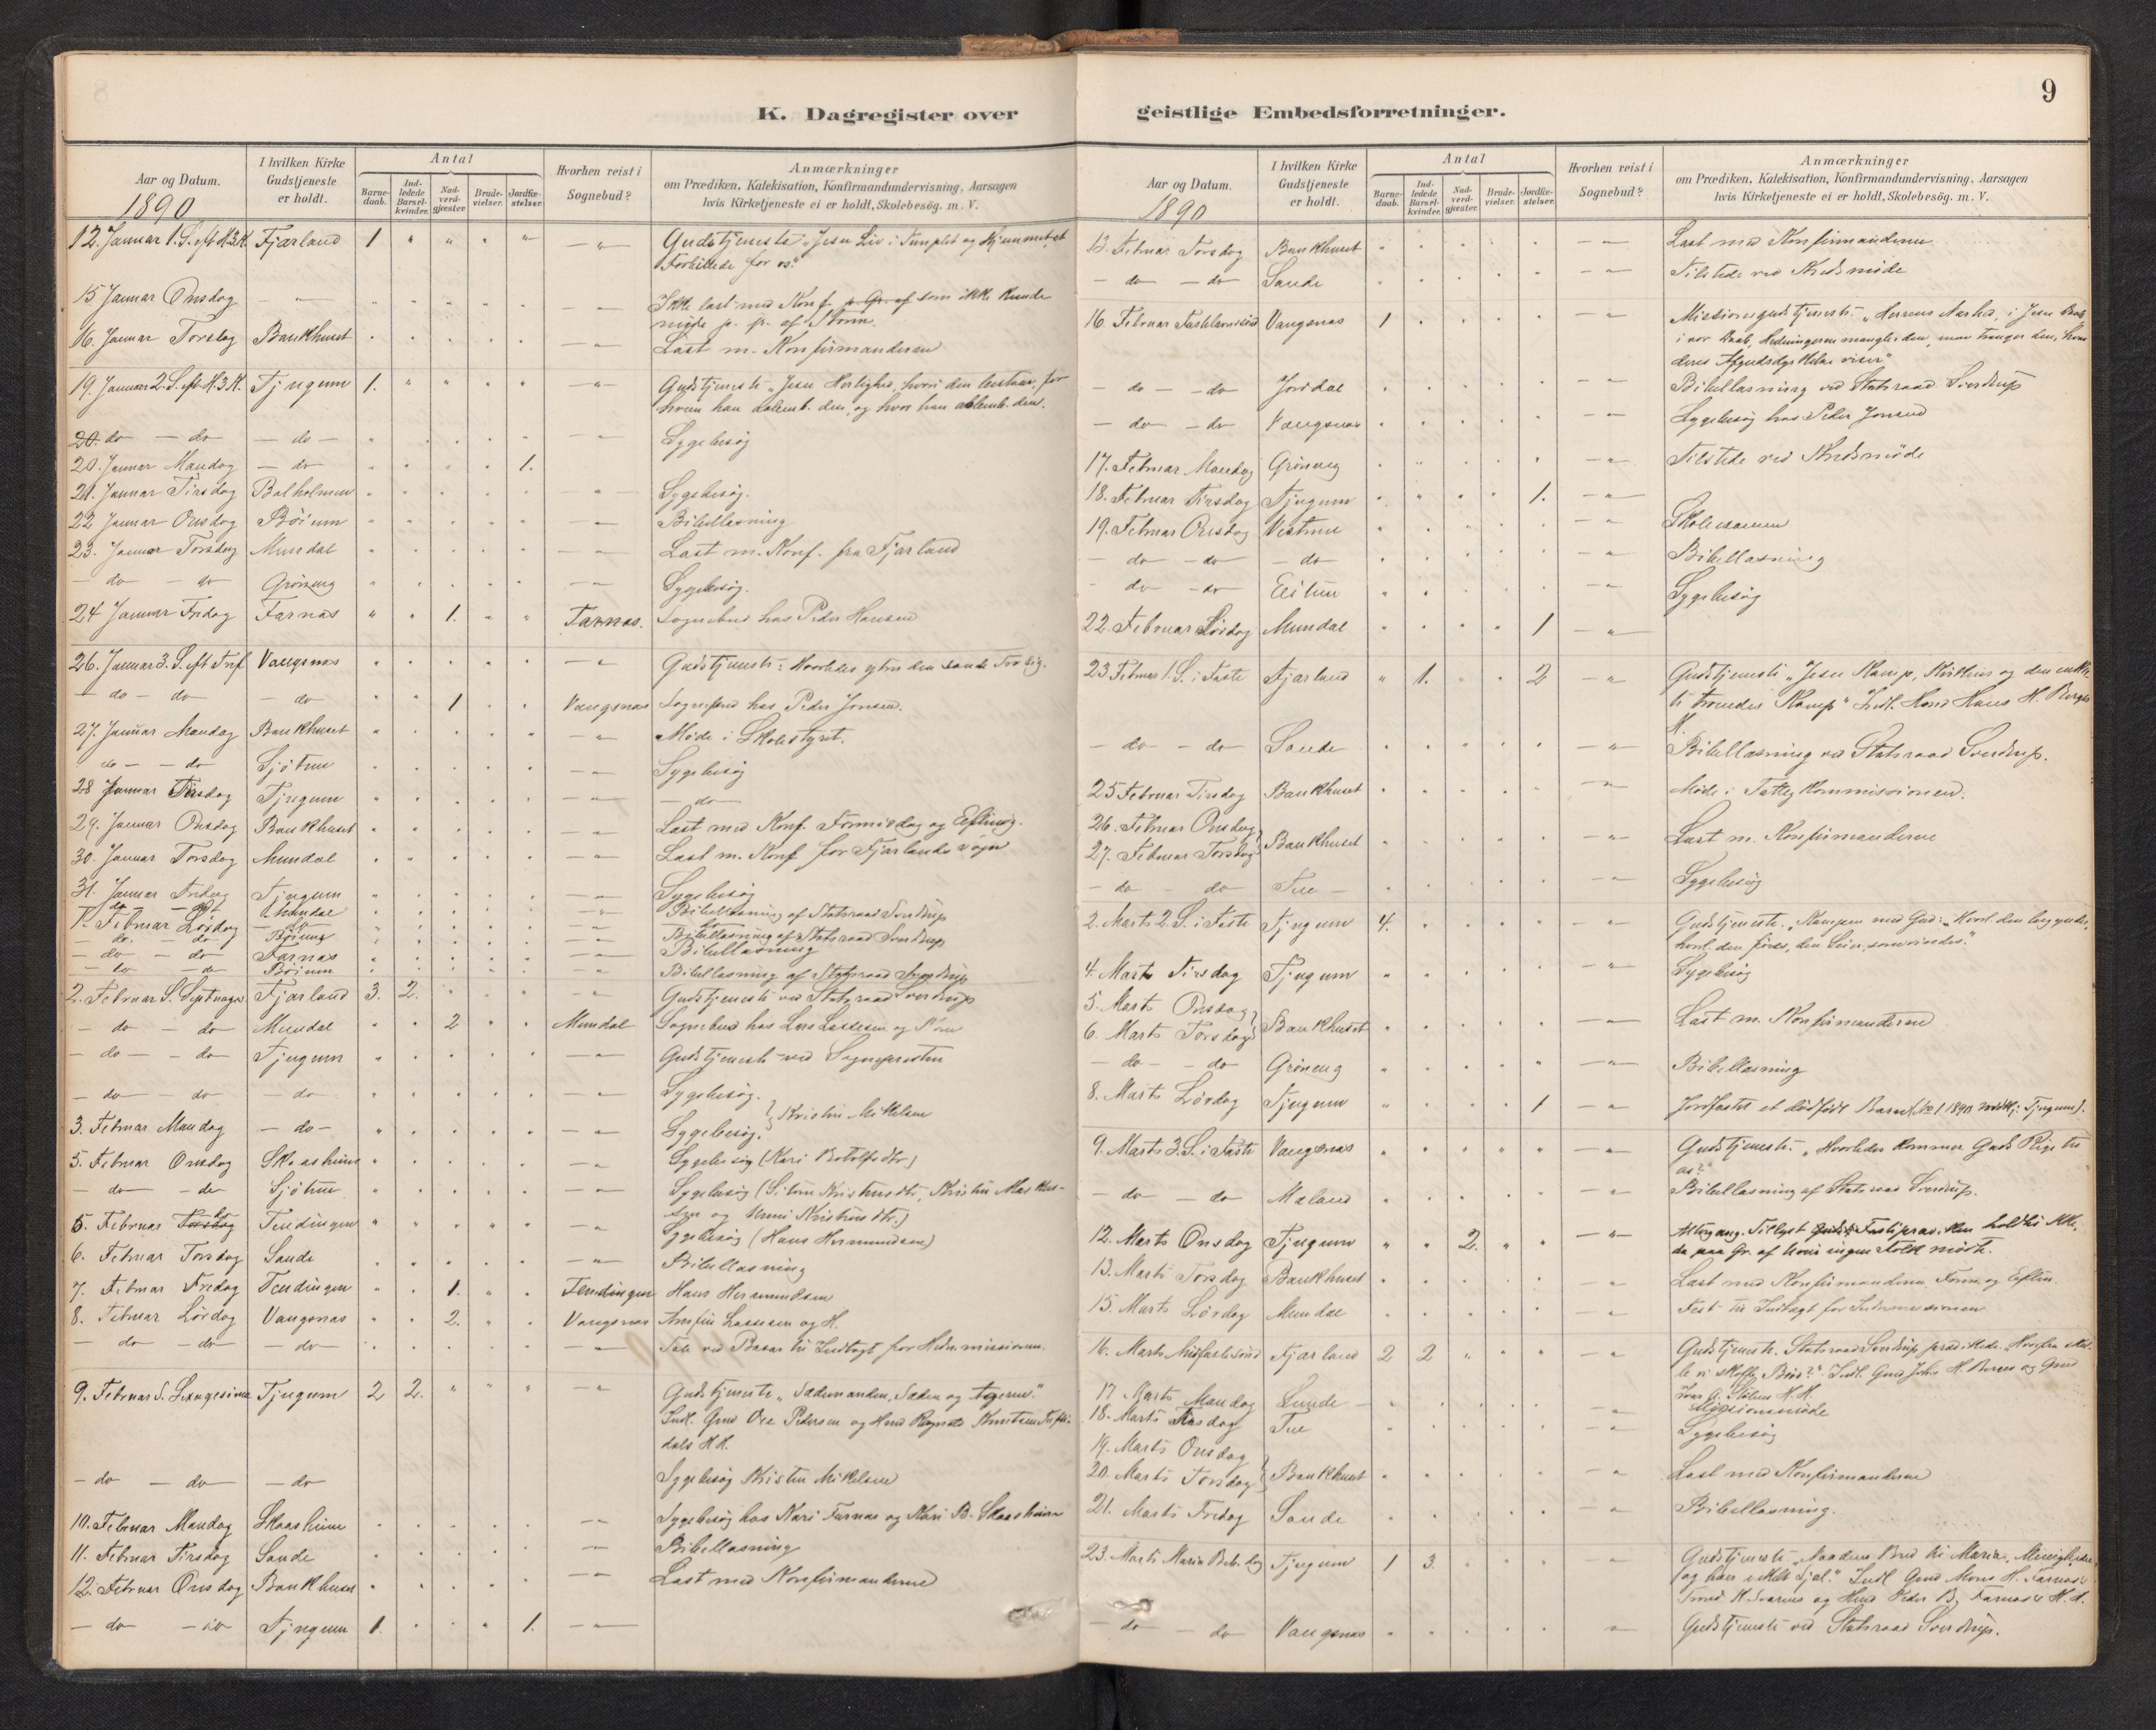 9
K. Dagregister over geistlige Embedsforretninger.
Aar og Datum.
I hvilken Kirke Gudstjeneste er holdt.
Antal
Barne-daab.
Ind-ledede Barsel-kvinder.
Nad-verd-gjæster.
Brude-vielser.
Jordfæ-stelser.
Hvorhen reist i Sognebud?
Anmærkninger
om Prædiken, Katekisation, Konfirmandundervisning, Aarsagen
hvis Kirketjeneste ei er holdt, Skolebesög. m. V.
1890
12. Januar 1. S. eft H.3.K. Fjærland 1 " " " " Gudstjeneste "Jesu Liv i Templet og Hjemmet et
Forbillede for os."
15 Januar Onsdag Ikke læst med Konf. p. Gr. af som ikke kunde
møde p. gr. af Storm.
16. Januar Torsdag Bankhuset Læst m. Konfirmanderne
19. Januar 2. S. eft H.3.K. Tjugum 1. Gudstjeneste "Jesu Herlighed, hvori den bestaar, for
hvem han aabenb. den, og hvor han aabenb. den.
20. do - do - do - Sygebesög
20. Januar Mandag - do 1.
21. Januar Tirsdag Balholmen Sygebesög.
22 Januar Onsdag Böium Bibellæsning
23. Januar Torsdag Mundal Læst m. Konf. fra Fjærland
- do - do Gröneng Sygebesög.
24 Januar Fredag Farnæs 1. Farnæs. Sognebud hos Peder Hansen
26. Januar 3. S. eft Vangsnæs Gudstjeneste: Hvorledes ytrer den sande Tro sig.
- do - do - do 1 Vangsnæs Sognebud hos Peder Jonsen.
27. Januar Mandag Bankhuset Møde i Skolestyret.
- do - do Sjötun Sygebesög
28 Januar Tirsdag Tjugum - do
29. Januar Onsdag Bankhuset Læst med Konf. Formiddag og Eftmdg.
30. Januar Torsdag Mundal Læst m. Konf for Fjærlands Sogn
31. Januar Fredag Tjugum Sygebesög
- do - do Mundal Bibellæsning af Statsraad Sverdrup
1. Februar Lördag - do
- do. - do Bibellæsning af Statsraad Sverdrup
- do - do Farnæs Bibellæsning
- do - do Böium Bibellæsning af Statsraad Sverdrup
2. Februar S. Septuages Fjærland 3. 2. Gudstjeneste ved Statsraad Sverdrup
- do - do Mundal 2 Mundal Sognebud hos Lars Lassesen og
- do - - do Tjugum Gudstjeneste ved Sognepresten
- do - do - do Sygebesög.
3. Februar Mandag - do - Sygebesög. } Kristin Mikelsen
5. Februar Onsdag Skaasheim Sygebesög (Kari Botolfsdtr.)
- do - do Sjötun Sygebesög
5. Februar Torsdag do Tendingen Sygebesög (Hans Hermundsen)
6. Februar Torsdag Sande Bibellæsning
7. Februar Fredag Tendingen 1. Tendingen Hans Hermundsen
8. Februar Lördag Vangsnæs 2. Vangsnæs Anfin Lassesen og H.
- do - do - do Tale ved Basar til Indtægt for Hedn. missionen.
9. Februar S. Sexagesima Tjugum 2 2. Gudstjeneste "Sædemanden, Sæden og Ageren."
Indl. Gmd Ole Pedersen og Hmd
dals H.H.
- do - do - do Sygebesög Kristin Mikelsen
10. Februar Mandag Skaasheim Sygebesög hos Kari Farnæs og Kari B. Skaasheim
11. Februar Tirsdag Sande Bibellæsning
12. Februar Onsdag Bankhuset Læst med Konfirmanderne
- do - do Tjugum 1. 1.
Aar og Datum.
I hvilken Kirke Gudstjeneste er holdt.
Antal
Barne-daab.
Ind-ledede Barsel-kvinder.
Nad-verd-gjæster.
Brude-vielser.
Jordfæ-stelser.
Hvorhen reist i Sognebud?
Anmærkninger
om Prædiken, Katekisation, Konfirmandundervisning, Aarsagen
hvis Kirketjeneste ei er holdt, Skolebesög. m. V.
1890
13. Februar Torsdag Bankhuset Læst med Konfirmanderne
- do - do Sande Tilstede ved Kredsmöde
16. Februar Fastelavnssönd Vangsnæs 1 Missionsgudstjeneste. "Herrens Nærhed i Jesu Daab
i vor Daab, Hedningerne mangler den, men trænger den, hvad
deres Afgudsdyrkelse viser"
- do - do Jordal Bibellæsning ved Statsraad Sverdrup
- do - do Vangsnæs Sygebesög hos Peder Jonsen
17. Februar Mandag Gröneng Tilstede ved Kredsmöde
18. Februar Tirsdag Tjugum 1.
19. Februar Onsdag Vestrue Skoleexamen
- do - do - do Bibellæsning
- do - do Eitun Sygebesög
22. Februar Lördag Mundal 1
23 Februar 1. S. i Faste Fjærland 1. 2 Gudstjeneste "Jesu Kamp, Kirkens og den enkelte
troendes Kamp" Indl. Hmd Hans H. Berges
H.
- do - do Sande Bibellæsning ved Statsraad Sverdrup.
25 Februar Tirsdag Bankhuset Møde i Fattigkommissionen.
26. Februar Onsdag } Bankhuset Læst m. Konfirmanderne
27. Februar Torsdag
- do - do Tue - Sygebesög
2. Marts 2. S. i Faste Tjugum 4. Gudstjeneste. "Kampen med Gud: Hvorl. den begyndes,
hvorl. den föres, den Seier, som vindes."
4. Marts Tirsdag Tjugum Sygebesög
5. Marts Onsdag } Bankhuset Læst m. Konfirmanderne
6. Marts Torsdag
- do - do Gröneng Bibellæsning
8. Marts Lördag Tjugum 1 Jordfæstet et dödfödt Barn
9. Marts 3. S. i Faste Vangsnæs Gudstjeneste. "Hvorledes kommer Guds Rige til
os?"
- do - do Mæland Bibellæsning af Statsraad Sverdrup.
12. Marts Onsdag Tjugum 2. Altergang. Tillyst Fastepræken holdtes ikke,
da paa Gr. af Veiret ingen Folk mödte.
13. Marts Torsdag Bankhuset Læst med Konfirmanderne. Form. og Eftm.
15. Marts Lördag Mundal Fest til Indtægt for Indremissionen
16. Marts Midfastesönd Fjærland 2 2 Gudstjeneste. Statsraad Sverdrup prædikede. Hvorfra skulle
vi skaffe Bröd?" Indl. Gmd Johs H. Böiens og Gmd
H.H.
17 Marts Mandag Lunde Missionsmöde
18. Marts Tirsdag Tue Sygebesög
19. Marts Onsdag
20. Marts Torsdag } Bankhuset Læst med Konfirmanderne
21. Marts Fredag Sande Bibellæsning.
23. Marts Maria Beb. dag Tjugum 1 3. Gudstjeneste. "Naadens Bud til Maria, Menigheden
og hver enkelt Sjæl." Indl Gmd Mons H. Farnæs
og Hmd Peder B. Farnæs H.H.
- do - do Vangsnæs Gudstjeneste ved Statsraad Sverdrup.